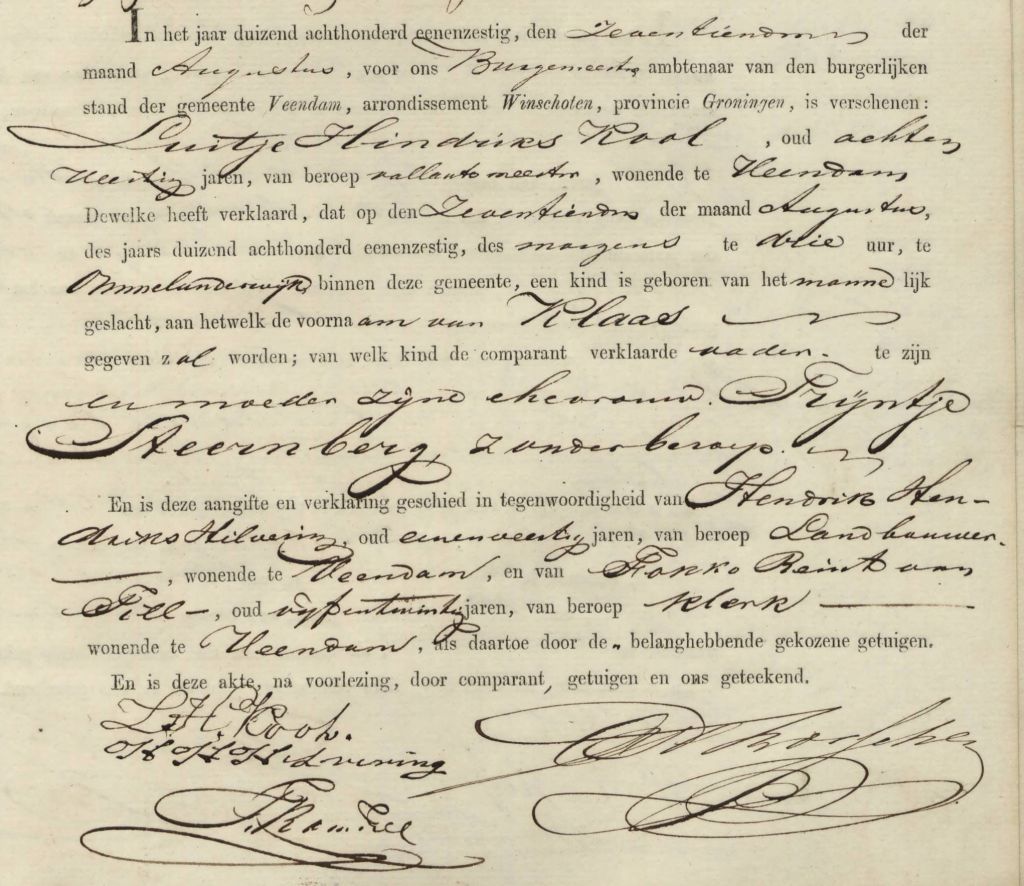 In het jaar duizend achthonderd eenenzestig, den Zeventienden der
maand Augustus, voor ons Burgemeester ambtenaar van den burgerlijken
stand der gemeente Veendam, arrondissement Winschoten, provincie Groningen, is verschenen:
Luitje Hindriks Kool, oud achten
Veertig jaren, van beroep vallaatsmeester, wonende te Veendam
Dewelke heeft verklaard, dat op den Zeventienden der maand Augustus,
des jaars duizend achthonderd eenenzestig, des morgens te drie uur, te
Ommelanderwijk binnen deze gemeente, een kind is geboren van het manne lijk
geslacht, aan hetwelk de voorna am van Klaas
gegeven z al worden; van welk kind de comparant verklaarde vader te zijn
en moeder zijne ehevrouw. Trijntje
Steernberg, zonder beroep.
En is deze aangifte en verklaring geschied in tegenwoordigheid van Hendrik Hen-
driks Hilvering, oud eenenveertig jaren, van beroep Landbouwer.
, wonende te Veendam, en van Fokko Reint van
Till, oud vijfentwintig jaren, van beroep klerk
wonende te Veendam, als daartoe door de belanghebbende gekozene getuigen.
En is deze akte, na voorlezing, door comparant, getuigen en ons geteekend.
L. H. Kool.
H H Hilvering
F. R. van Till